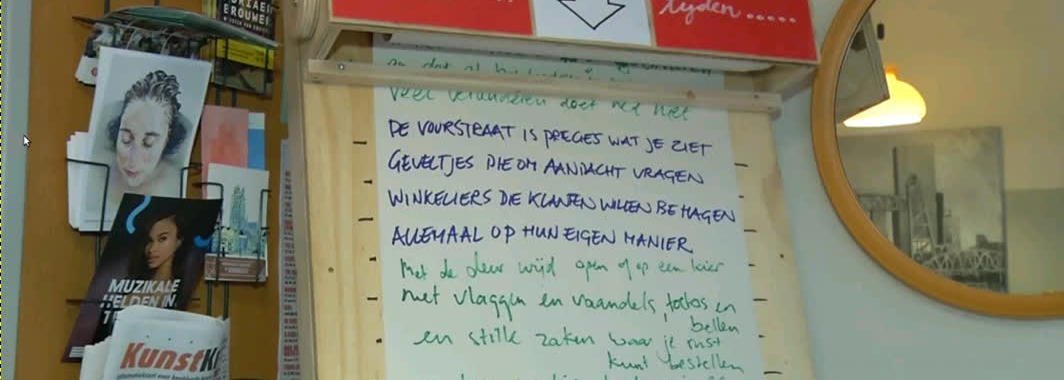 BROUWER
lyden.....
veel veranderen doet het niet
DE VOORSTRAAT IS PRECIES WAT JE ZIET
GEVELTJES DIE OM AANDACHT VRAGEN
WINKELIERS DIE KLANTEN WILLEN BEHAGEN
ALLEMAAL OP HUN EIGEN MANIER
Met de deur wijd open of op een kier
met vlaggen en vaandels, toeters en
bellen
en stille zaken waar je rust
kunt bestellen
MUZIKALE
HELDEN IN
KunstK